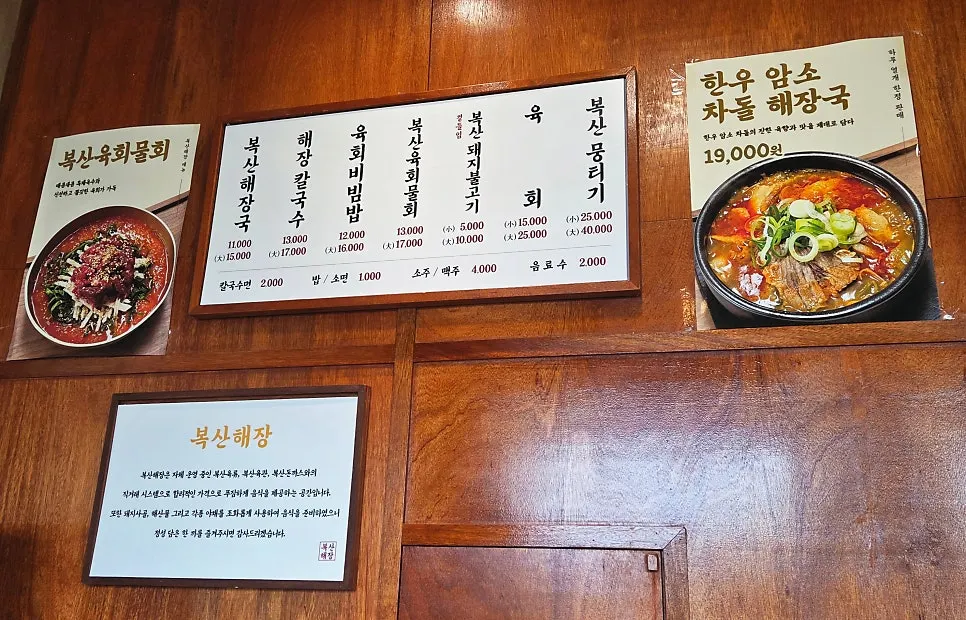 복산육회물회
새콤매콤 특제육수와
신선하고 쫄깃한 육회가 가득
복산해장국
11.000
(大) 15.000
해장 칼국수
13.000
(大) 17.000
육회비빔밥
12.000
(大) 16.000
복산육회물회
13.000
(大) 17.000
곁들임
복산 돼지불고기
(小) 5.000
(大) 10.000
육 회
(小) 15.000
(大) 25.000
복산 뭉티기
(小) 25.000
(大) 40.000
칼국수면 2.000
밥 / 소면 1.000
소주 / 맥주 4.000
음료수 2.000
한우 암소
차돌 해장국
한우 암소 차돌의 진한 육향과 맛을 제대로 담다
19,000원
하루 열개 한정 판매
복산해장
복산해장은 자체 운영 중인 복산육류, 복산육관, 복산돈까스와의
직거래 시스템으로 합리적인 가격으로 푸짐하게 음식을 제공하는 공간입니다.
또한 돼지사골, 해산물 그리고 각종 야채를 조화롭게 사용하여 음식을 준비하였으니
정성 담은 한 끼를 즐겨주시면 감사드리겠습니다.
복산
해장